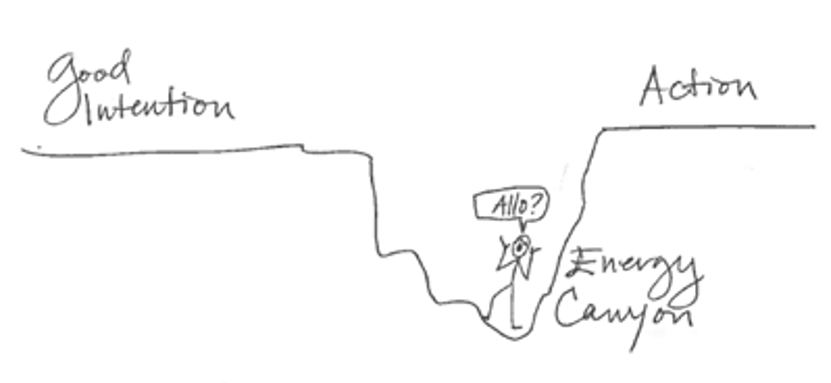 Good
Intention
Action
Allo?
Energy
Canyon